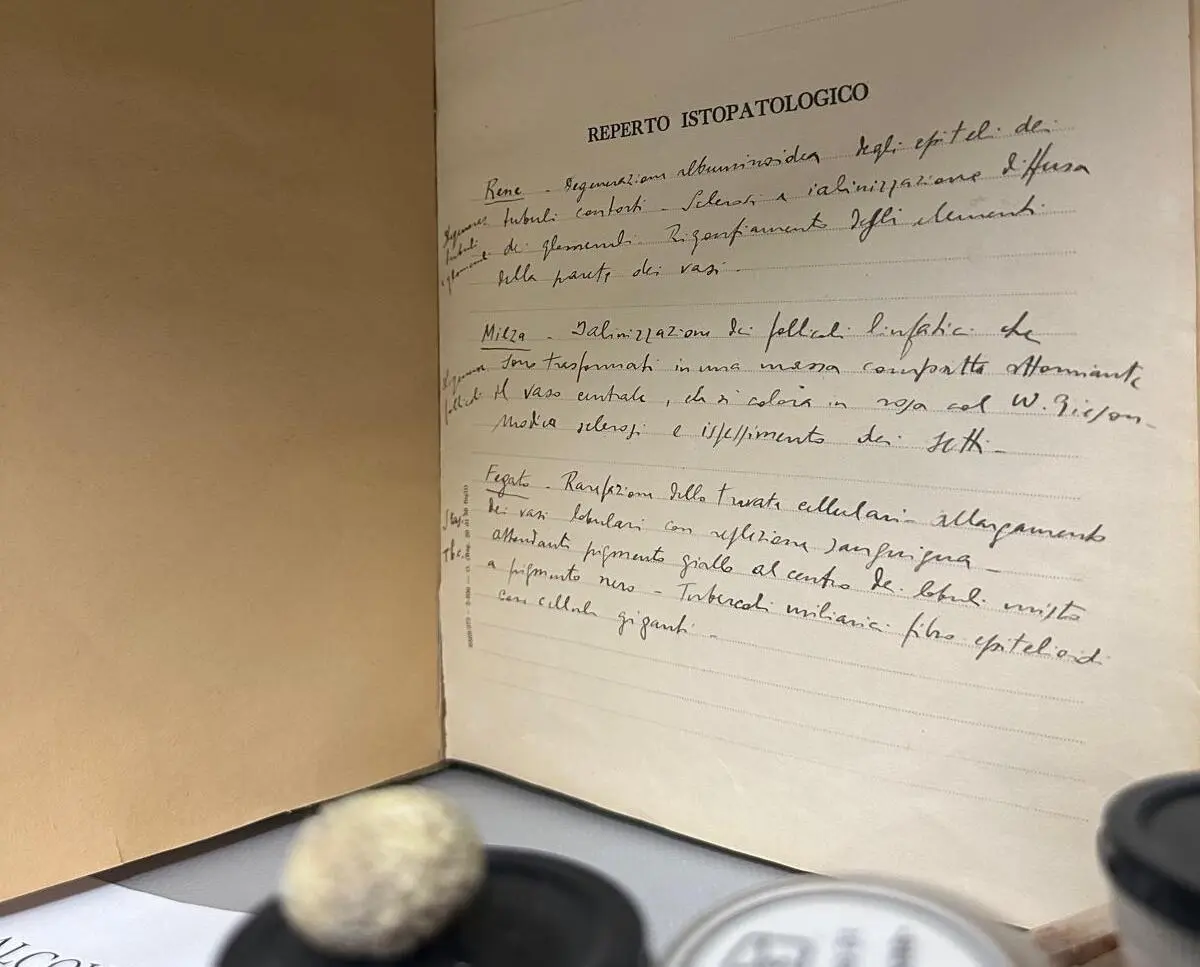 REPERTO ISTOPATOLOGICO
Rene - Degenerazione albuminoidea degli epiteli dei
tubuli contorti - Sclerosi e ialinizzazione diffusa
dei glomeruli. Rigonfiamento degli elementi
della parete dei vasi -
Milza - Ialinizzazione dei follicoli linfatici che
sono trasformati in una massa compatta attorniante
il vaso centrale, che si colora in rosa col W. Gieson -
Modica sclerosi e ispessimento dei setti -
Fegato - Rarefazione delle travate cellulari - allargamento
dei vasi lobulari con replezione sanguigna -
abbondante pigmento giallo al centro dei lobuli misto
a pigmento nero - Tubercoli miliarici fibro epitelioidi
con cellule giganti -
tubuli
follicoli
Tbc.
ALCO